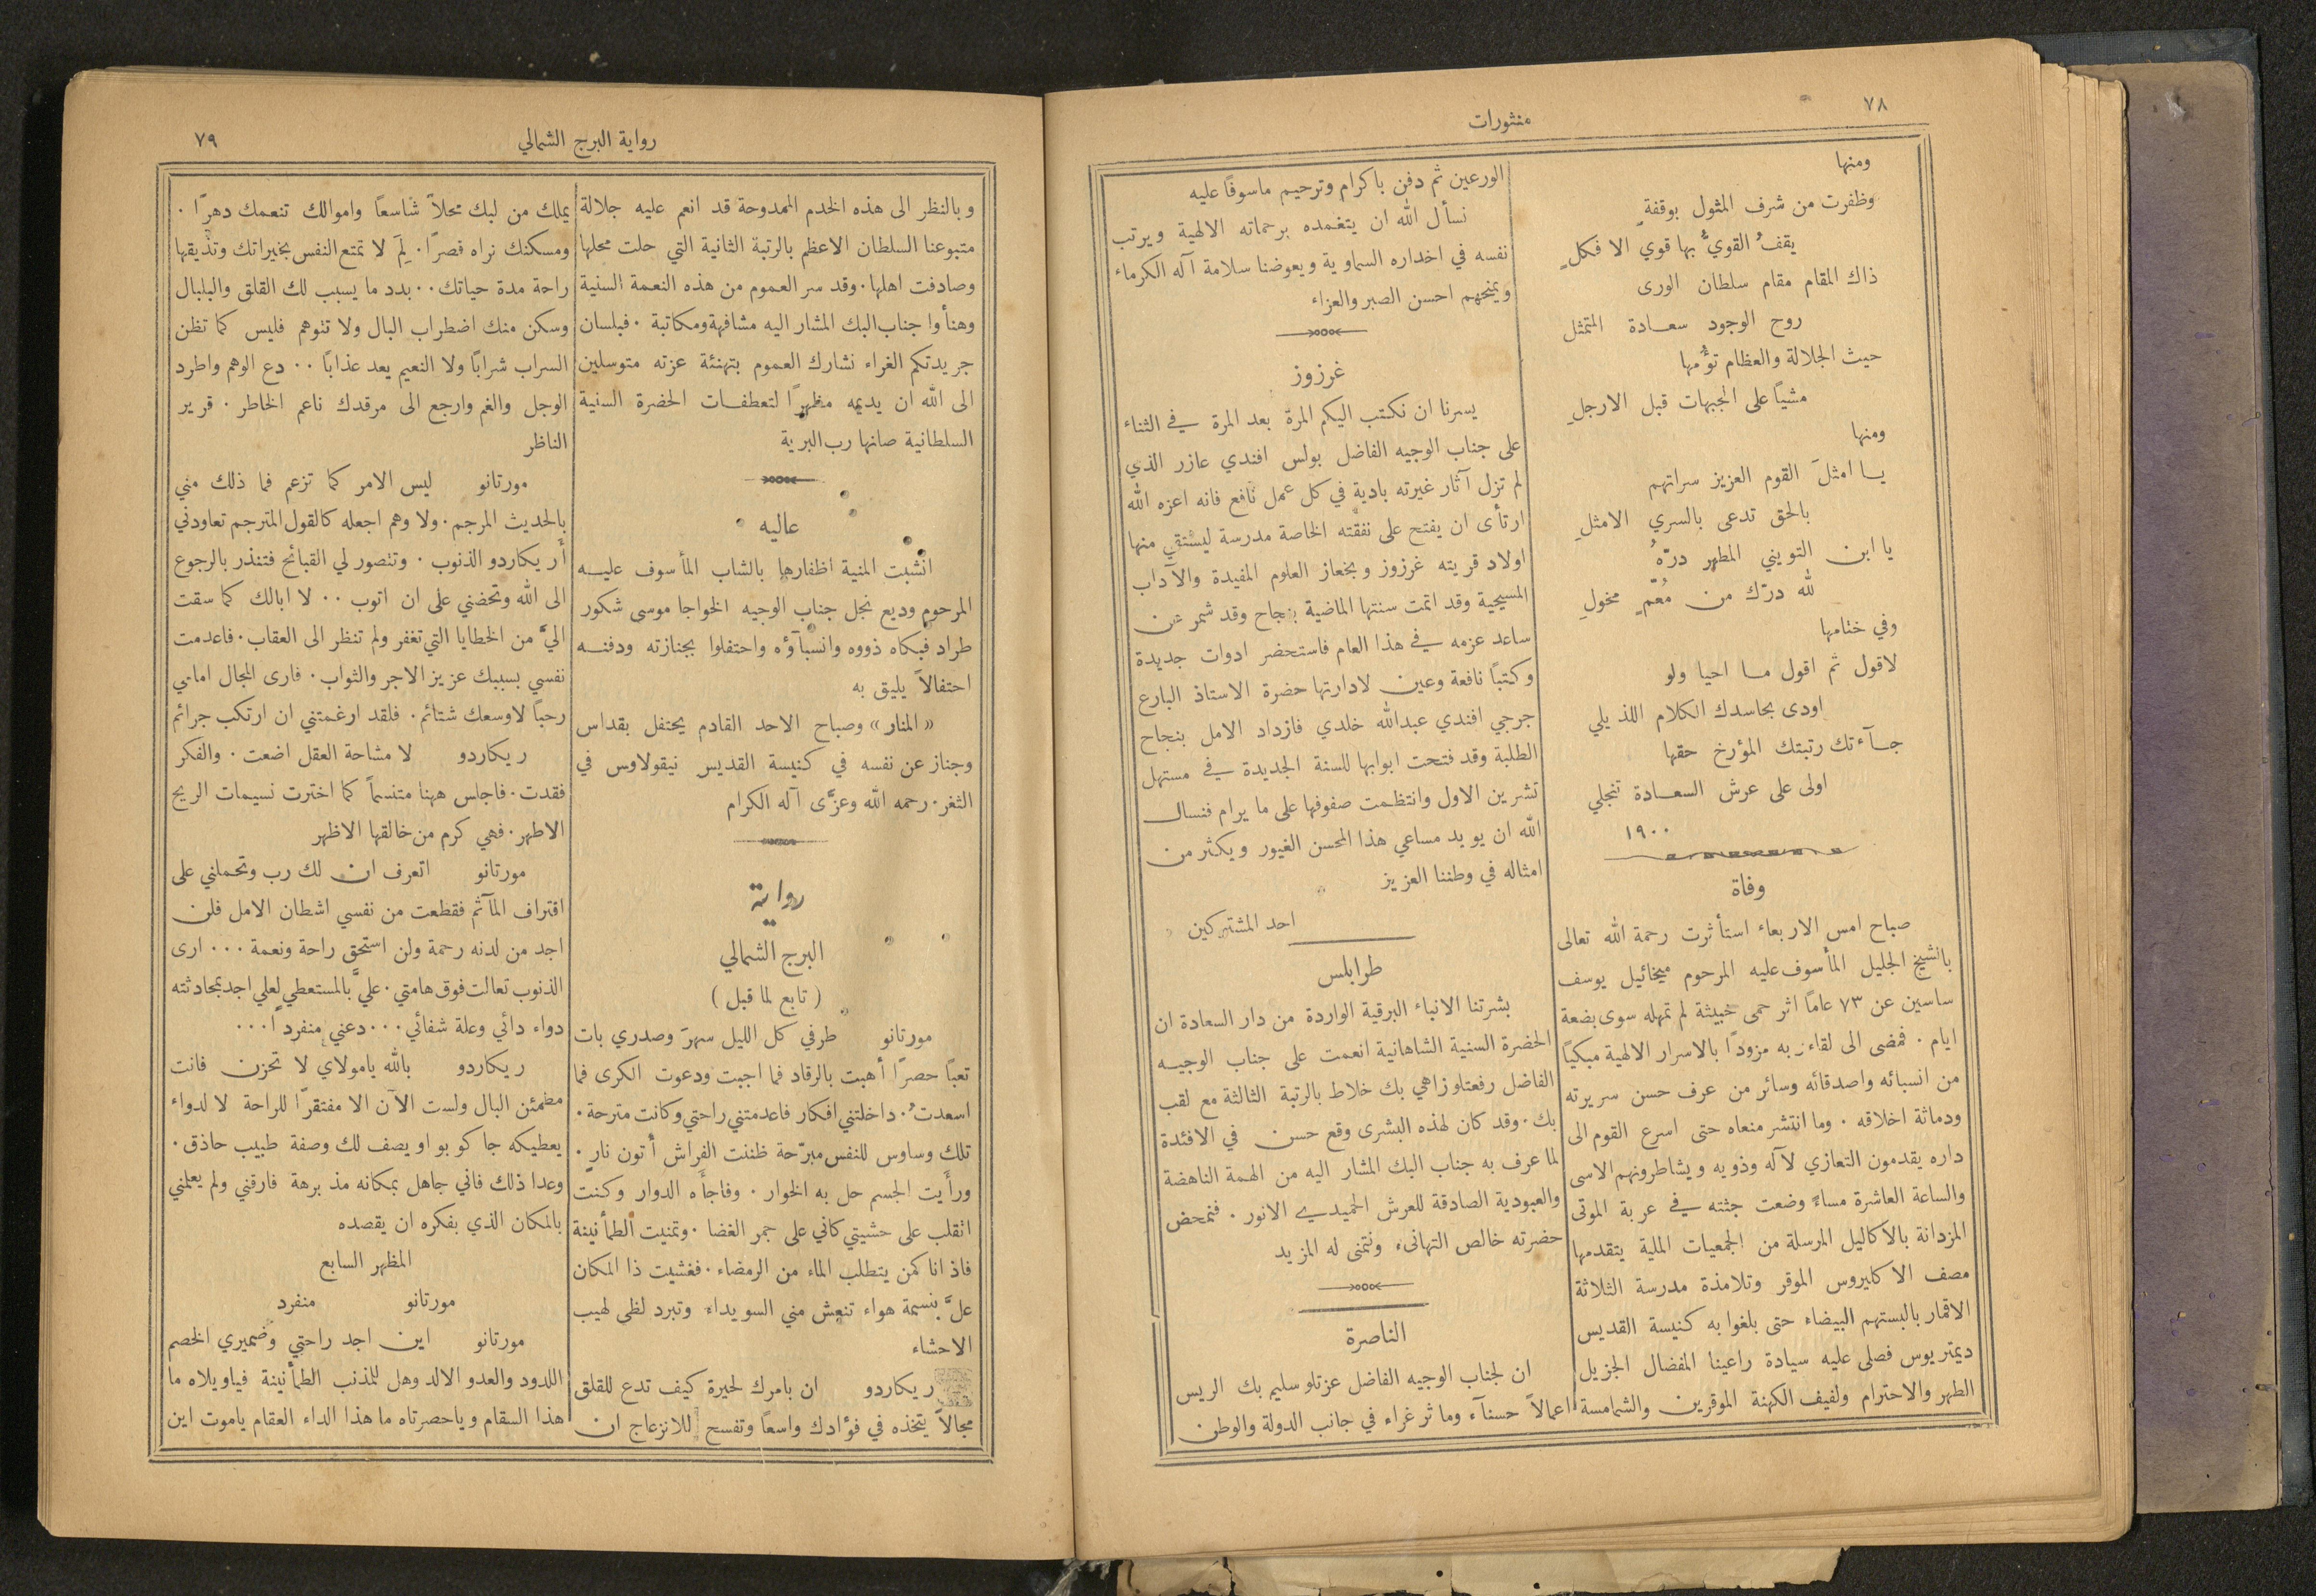 ٧٨
منثورات
ومنها
وظفرت من شرف المثول بوقفةٍ
يقفُ القويُّ بها قوي الا فكلِ
ذاك المقام مقام سلطان الورى
روح الوجود سعادة المتمثل
حيث الجلالة والعظام تؤُمها
مشياً على الجبهات قبل الارجلِ
ومنها
يا امثلَ القوم العزيز سراتهم
بالحق تدعى بالسري الامثلِ
يا ابن التويني المطهر درّهُ
لله درّك من مُعّمٍ مخولِ
وفي ختامها
لاقول ثم اقول ما احيا ولو
اودى بحاسدك الكلام اللذ يلي
جآءتك رتبتك المؤرخ حقها
اولى على عرش السعادة تنجلي
١٩٠٠
وفاة
صباح امس الاربعاء استأثرت رحمة الله تعالى
بالشيخ الجليل المأسوف عليه المرحوم ميخائيل يوسف
ساسين عن ٧٣ عامًا اثر حمى خبيثة لم تمهله سوى بضعة
ايام . فمضى الى لقاء ربه مزودًا بالاسرار الالهية مبكيًا
من انسبائه واصدقائه وسائر من عرف حسن سريرته
ودماثة اخلاقه . وما انتشر منعاه حتى اسرع القوم الى
داره يقدمون التعازي لآله وذويه ويشاطرونهم الاسى
والساعة العاشرة مساءً وضعت جثته في عربة الموتى
المزدانة بالاكاليل المرسلة من الجمعيات الملية يتقدمها
مصف الاكليروس الموقر وتلامذة مدرسة الثلاثة
الاقمار بالبستهم البيضاء حتى بلغوا به كنيسة القديس
ديمتريوس فصلى عليه سيادة راعينا المفضال الجزيل
الطهر والاحترام ولفيف الكهنة الموقرين والشمامسة
الورعين ثم دفن باكرام وترحيم ماسوفًا عليه
نسأل الله ان يتغمده برحماته الالهية ويرتب
نفسه في اخداره السماوية ويعوضنا سلامة آله الكرماء
ويمنحهم احسن الصبر والعزاء
غرزوز
يسرنا ان نكتب اليكم المرة بعد المرة في الثناء
على جناب الوجيه الفاضل بولس افندي عازر الذي
لم تزل آثار غيرته بادية في كل عمل نافع فانه اعزه الله
ارتأى ان يفتح على نفقته الخاصة مدرسة ليستقي منها
اولاد قريته غرزوز وبخعاز العلوم المفيدة والآداب
المسيحية وقد اتمت سنتها الماضية بنجاح وقد شمر عن
ساعد عزمه في هذا العام فاستحضر ادوات جديدة
وكتبًا نافعة وعين لادارتها حضرة الاستاذ البارع
جرجي افندي عبدالله خلدي فازداد الامل بنجاح
الطلبة وقد فتحت ابوابها للسنة الجديدة في مستهل
تشرين الاول وانتظمت صفوفها على ما يرام فنسال
الله ان يويد مساعي هذا المحسن الغيور ويكثر من
امثاله في وطننا العزيز
احد المشتركين
طرابلس
بشرتنا الانباء البرقية الواردة من دار السعادة ان
الحضرة السنية الشاهانية انعمت على جناب الوجيه
الفاضل رفعتلو زاهي بك خلاط بالرتبة الثالثة مع لقب
بك . وقد كان لهذه البشرى وقع حسن في الافئدة
لما عرف به جناب البك المشار اليه من الهمة الناهضة
والعبودية الصادقة للعرش الحميدي الانور . فنمحض
حضرته خالص التهانىء ونتمنى له المزيد
الناصرة
ان لجناب الوجيه الفاضل عزتلو سليم بك الريس
اعمالاً حسنآء وماثر غراء في جانب الدولة والوطن
رواية البرج الشمالي
٧٩
وبالنظر الى هذه الخدم الممدوحة قد انعم عليه جلالة
متبوعنا السلطان الاعظم بالرتبة الثانية التي حلت محلها
وصادفت اهلها . وقد سر العموم من هذه النعمة السنية
وهنأوا جناب البك المشار اليه مشافهة ومكاتبة . فبلسان
جريدتكم الغراء نشارك العموم بتهنئة عزته متوسلين
الى الله ان يديمه مظهرًا لتعطفات الحضرة السنية
السلطانية صانها رب البرية
عاليه
انشبت المنية اظفارها بالشاب المأسوف عليه
المرحوم وديع نجل جناب الوجيه الخواجا موسى شكور
طراد فبكاه ذووه وانسبآؤه واحتفلوا بجنازته ودفنه
احتفالاً يليق به
«المنار» وصباح الاحد القادم يحتفل بقداس
وجناز عن نفسه في كنيسة القديس نيقولاوس في
الثغر . رحمه الله وعزَّى آله الكرام
رواية
البرج الشمالي
(تابع لما قبل)
مورتانو طرفي كل الليل سهرَ وصدري بات
تعبًا حصرًا أهبت بالرقاد فما اجبت ودعوت الكرى فما
اسعدتُ . داخلتني افكار فاعدمتني راحتي وكانت مترحة .
تلك وساوس للنفس مبرّحة ظننت الفراش أتون نارٍ .
ورأيت الجسم حل به الخوار . وفاجأه الدوار وكنت
اتقلب على حشيتي كاني على جمر الغضا . وتمنيت الطمأنينة
فاذ انا كمن يتطلب الماء من الرمضاء . فغشيت ذا المكان
علَّ بنسمة هواء تنعش مني السويداء وتبرد لظى لهيب
الاحشاء
ريكاردو ان بامرك لحيرة كيف تدع للقلق
مجالاً يتخذه في فؤادك واسعًا وتفسح للانزعاج ان
يملك من لبك محلاً شاسعًا واموالك تنعمك دهرًا .
ومسكنك نراه قصرًا . لِمَ لا تمتع النفس بخيراتك وتذيقها
راحة مدة حياتك . . بدد ما يسبب لك القلق والبلبال
وسكن منك اضطراب البال ولا تتوهم فليس كما تظن
السراب شرابًا ولا النعيم يعد عذابًا . . دع الوهم واطرد
الوجل والغم وارجع الى مرقدك ناعم الخاطر . قرير
الناظر
مورتانو ليس الامر كما تزعم فما ذلك مني
بالحديث المرجم . ولا وهم اجعله كالقول المترجم تعاودني
أريكاردو الذنوب . وتتصور لي القبائح فتنذر بالرجوع
الى الله وتحضني على ان اتوب . . لا ابالك كما سقت
اليَّ من الخطايا التي تغفر ولم تنظر الى العقاب . فاعدمت
نفسي بسببك عزيز الاجر والثواب . فارى المجال امامي
رحبًا لاوسعك شتائم . فلقد ارغمتني ان ارتكب جرائم
ريكاردو لا مشاحة العقل اضعت . والفكر
فقدت . فاجلس ههنا متنسمًا كما اخترت نسيمات الريح
الاطهر . فهي كرم من خالقها الاظهر
مورتانو اتعرف ان لك رب وتحملني على
اقتراف المآثم فقطعت من نفسي اشطان الامل فلن
اجد من لدنه رحمة ولن استحق راحة ونعمة . . . ارى
الذنوب تعالت فوق هامتي . عليَّ بالمستعطي لعلي اجد بمحادثته
دواء دائي وعلة شفائي . . . دعني منفردًا . . .
ريكاردو بالله يامولاي لا تحزن فانت
مطمئن البال ولست الآن الا مفتقرًا للراحة لا لدواء
يعطيكه جاكوبو او يصف لك وصفة طبيب حاذق .
وعدا ذلك فاني جاهل بمكانه مذ برهة فارقني ولم يعلمني
بالمكان الذي بفكره ان يقصده
المظهر السابع
مورتانو منفرد
مورتانو اين اجد راحتي وضميري الخصم
اللدود والعدو الالد وهل للمذنب الطمأنينة فياويلاه ما
هذا السقام وياحصرتاه ما هذا الداء العقام ياموت اين